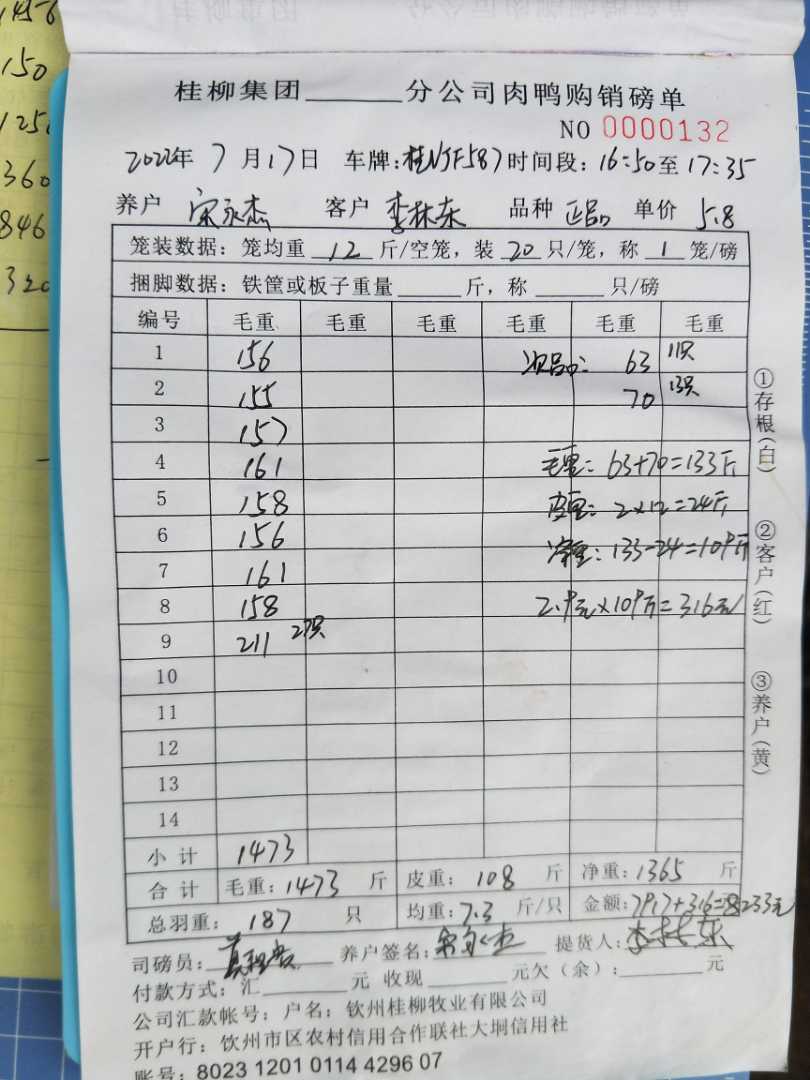 1456
150
125
360
846
320
桂柳集团______分公司肉鸭购销磅单
NO 0000132
2022年 7 月 17 日 车牌:桂NJF587 时间段: 16:50 至 17:35
养户 宋永杰 客户 李林东 品种 正品 单价 5.8
笼装数据: 笼均重 12 斤/空笼, 装 20 只/笼, 称 1 笼/磅
捆脚数据: 铁筐或板子重量______斤, 称______只/磅
编号 毛重 毛重 毛重 毛重 毛重 毛重
1 156 次品: 63 11只
2 155 70 13只
3 157
4 161 毛重: 63+70=133斤
5 158 皮重: 2×12=24斤
6 156 净重: 133-24=109斤
7 161
8 158 2.9元×109斤=316元
9 211 27只
10
11
12
13
14
小计 1473
合计 毛重: 1473 斤 皮重: 108 斤 净重: 1365 斤
总羽重: 187 只 均重: 7.3 斤/只 金额: 7917+316=8233元
司磅员: 养户签名: 宋永杰 提货人: 李林东
付款方式: 汇______元 收现______元欠(余):______元
公司汇款帐号: 户名: 钦州桂柳牧业有限公司
开户行: 钦州市区农村信用合作联社大垌信用社
账号: 8023 1201 0114 4296 07
①存根(白)
②客户(红)
③养户(黄)